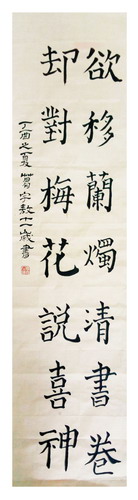 欲移蘭燭清書卷
却對梅花説喜神
丁酉之夏 蔔字教十一歲書